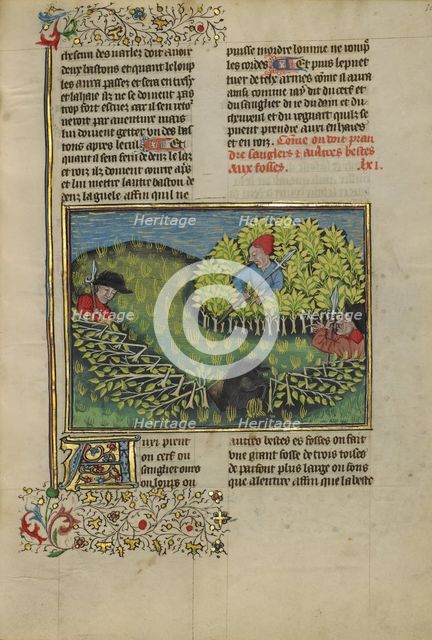 chascun des varlez doit avoir
deux bastons et quant le loup
les aura passez et sera entre
et la haie ilz ne se doivent pas
trop fort escrier car il sen
voit par aventure mais
lui doivent getter un des bas
tons apres le cul. Et
quant il sera feru dedenz le laz
et voiz ilz doivent courre aps
et lui mettre lautre baston
denz la guele affin quil ne
puisse mordre lomme ne romp
les cordes. Et puis le peut
tuer de telz armes come il aura
ainsi comme jay dit du cerf et
du sanglier du dain et du
chevreul et du regnart quilz se
peuent prendre aux haies
et en roiz. Come on doit pran
dre sanglers et autres bestes
aux fosses. lxi.
Aussi prent
on cerfs ou
sanglier ours
ou loups ou
autres bestes es fosses on fait
une grant fosse de trois toises
de parfont plus large ou fons
que alentree affin que la beste
Heritage
Heritage
Heritage
Heritage
Heritage
Heritage
C